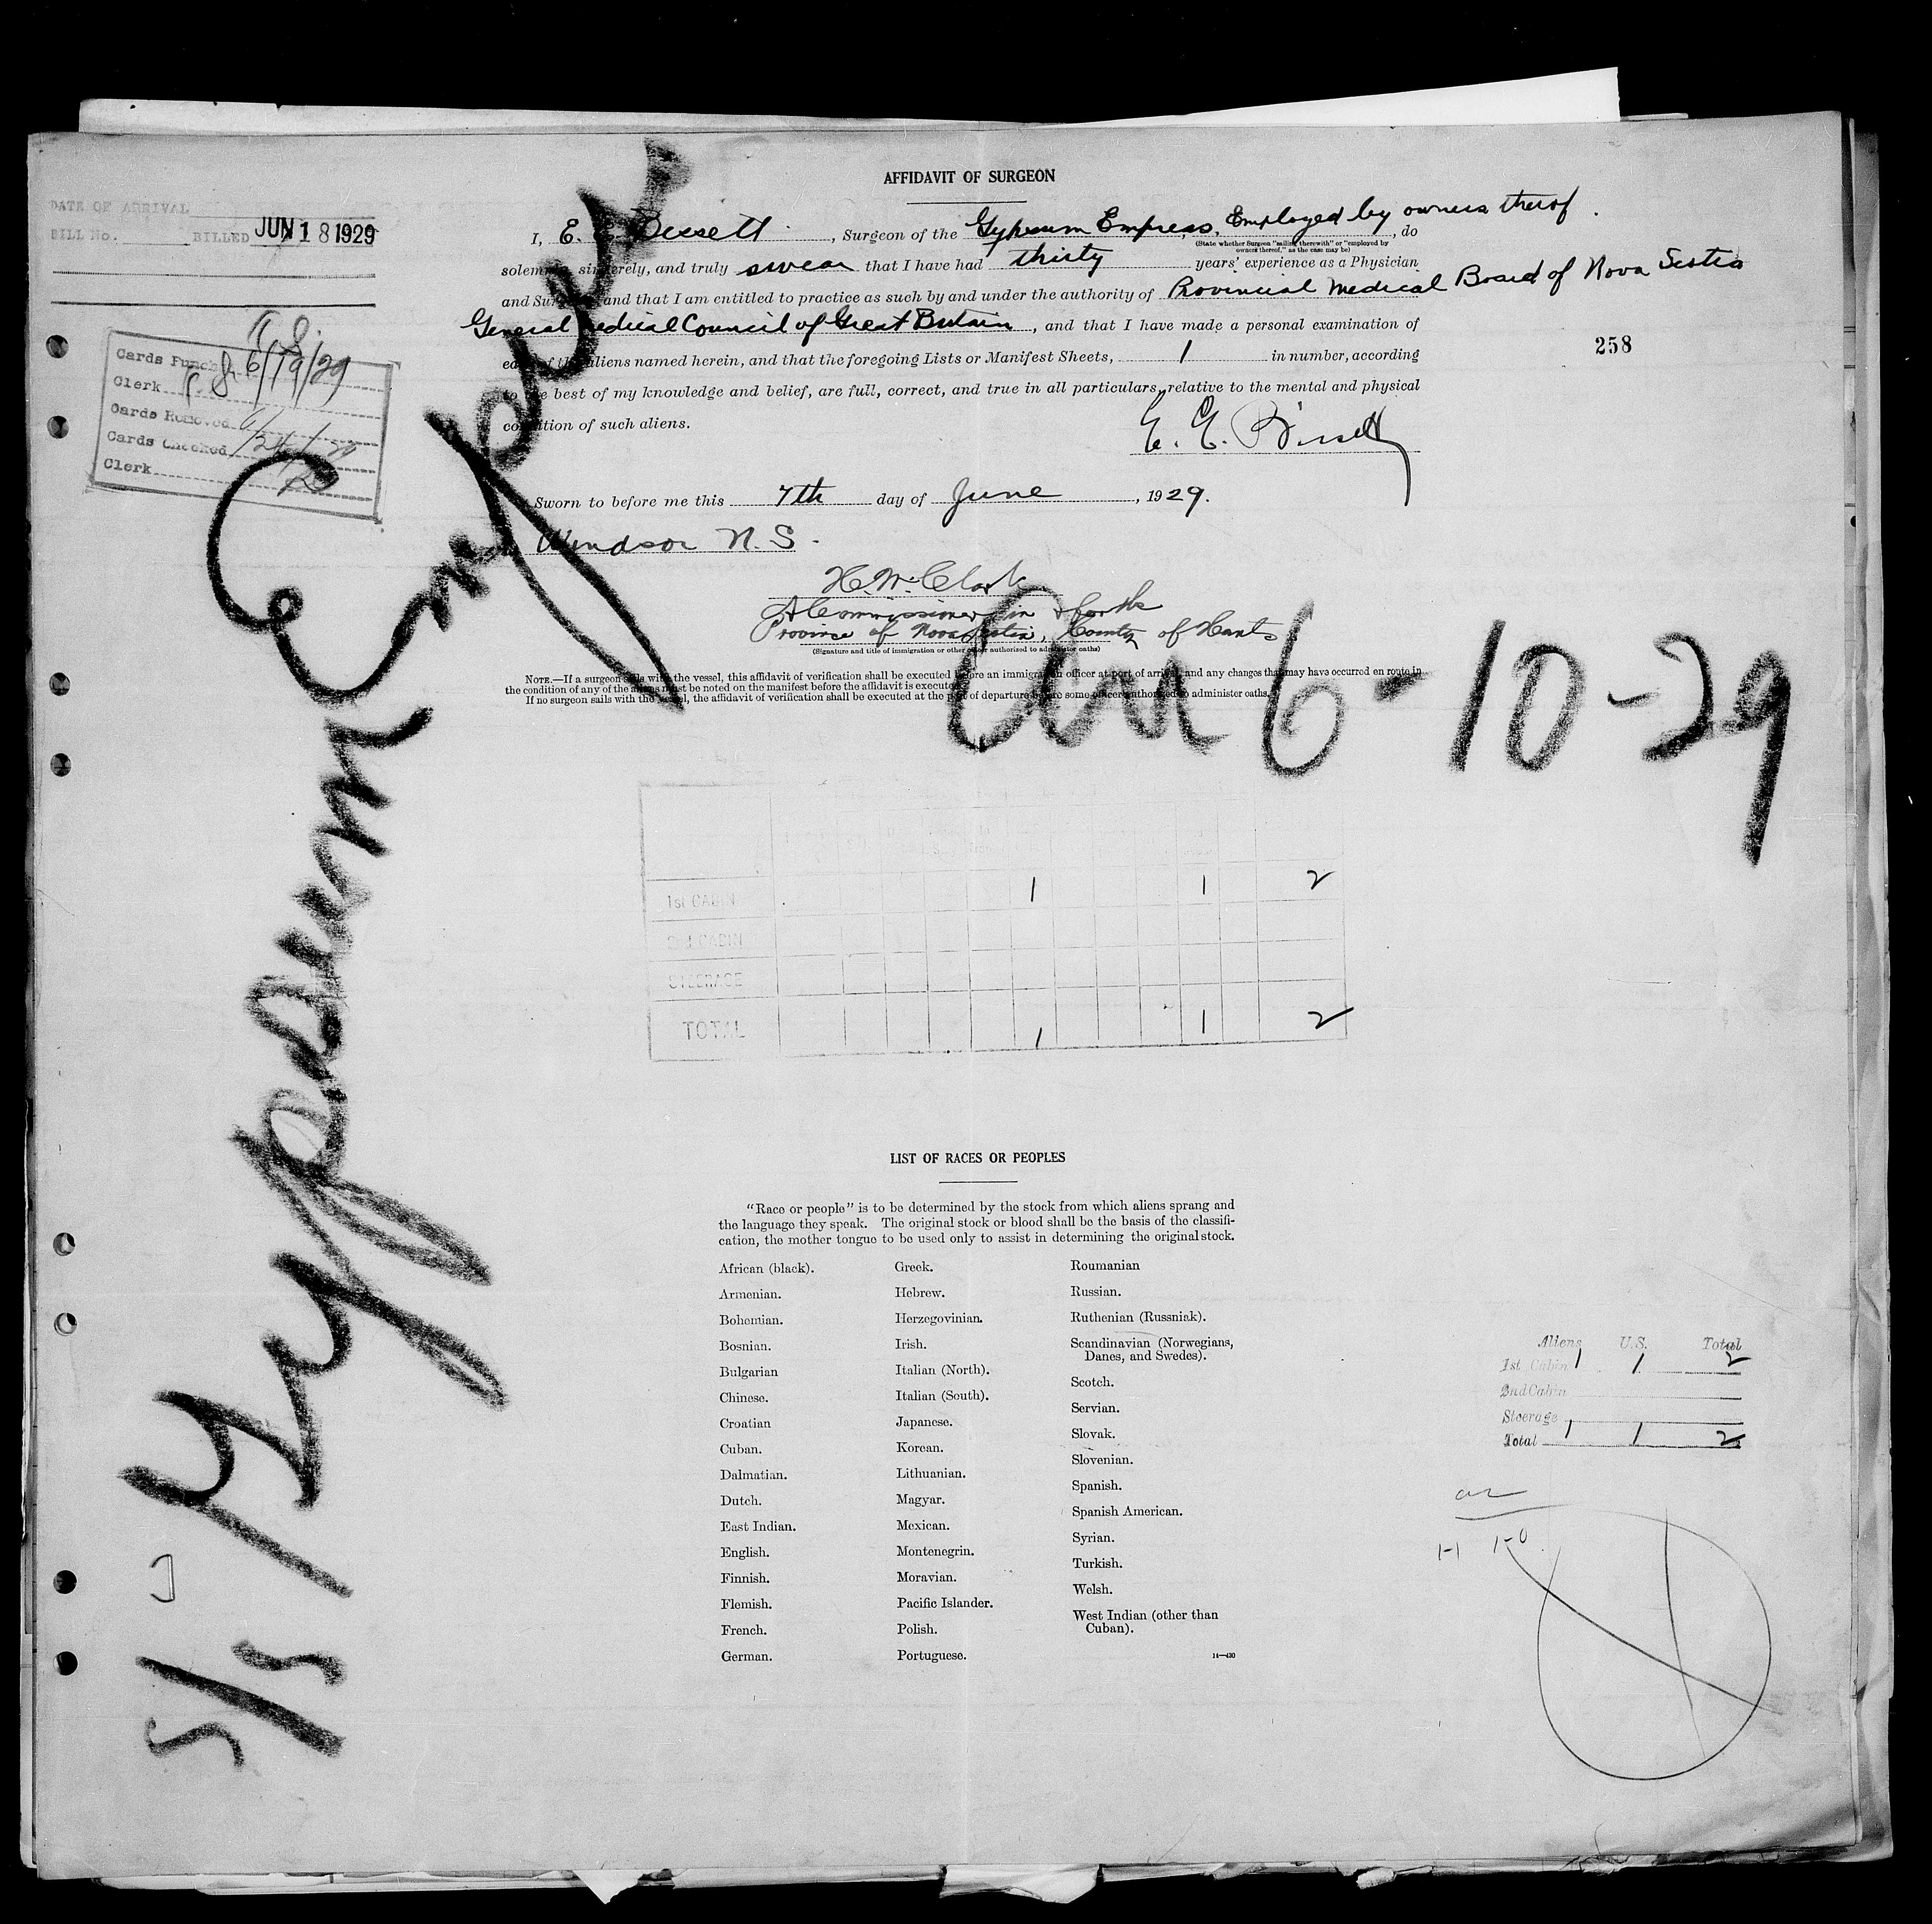 AFFIDAVIT OF SURGEON
DATE OF ARRIVAL
BILL No. BILLED JUN 18 1929
I, E. E. Bissett, Surgeon of the Gypsum Empress, Employed by owners therof, do
(State whether Surgeon "sailing therewith" or "employed by
owners thereof," as the case may be)
solemnly, sincerely, and truly swear that I have had thirty years' experience as a Physician
and Surgeon and that I am entitled to practice as such by and under the authority of Provincial Medical Board of Nova Scotia
General Medical Council of Great Britain, and that I have made a personal examination of
each of the aliens named herein, and that the foregoing Lists or Manifest Sheets, 1 in number, according
to the best of my knowledge and belief, are full, correct, and true in all particulars, relative to the mental and physical
condition of such aliens.
258
E. E. Bissett
Cards Punch 6/19/29
Clerk
Cards Removed
Cards Checked
Clerk
Sworn to before me this 7th day of June, 1929.
Windsor N.S.
H. W. Clark
A Commissioner in & for the
Province of Nova Scotia, County of Hants
(Signature and title of immigration or other officer authorized to administer oaths)
NOTE.—If a surgeon sails with the vessel, this affidavit of verification shall be executed before an immigration officer at port of arrival, and any changes that may have occurred en route in
the condition of any of the aliens must be noted on the manifest before the affidavit is executed.
If no surgeon sails with the vessel, the affidavit of verification shall be executed at the port of departure before some officer authorized to administer oaths.
S/S Gypsum Empress
Arr 6-10-29
1st CABIN 1 1 2
2nd CABIN
STEERAGE
TOTAL 1 1 2
LIST OF RACES OR PEOPLES
"Race or people" is to be determined by the stock from which aliens sprang and
the language they speak. The original stock or blood shall be the basis of the classifi-
cation, the mother tongue to be used only to assist in determining the original stock.
African (black).
Armenian.
Bohemian.
Bosnian.
Bulgarian
Chinese.
Croatian
Cuban.
Dalmatian.
Dutch.
East Indian.
English.
Finnish.
Flemish.
French.
German.
Greek.
Hebrew.
Herzegovinian.
Irish.
Italian (North).
Italian (South).
Japanese.
Korean.
Lithuanian.
Magyar.
Mexican.
Montenegrin.
Moravian.
Pacific Islander.
Polish.
Portuguese.
Roumanian
Russian.
Ruthenian (Russniak).
Scandinavian (Norwegians,
Danes, and Swedes).
Scotch.
Servian.
Slovak.
Slovenian.
Spanish.
Spanish American.
Syrian.
Turkish.
Welsh.
West Indian (other than
Cuban).
14—430
Aliens U.S. Total
1st Cabin 1 1 2
2nd Cabin
Steerage
Total 1 1 2
1-1 1-0